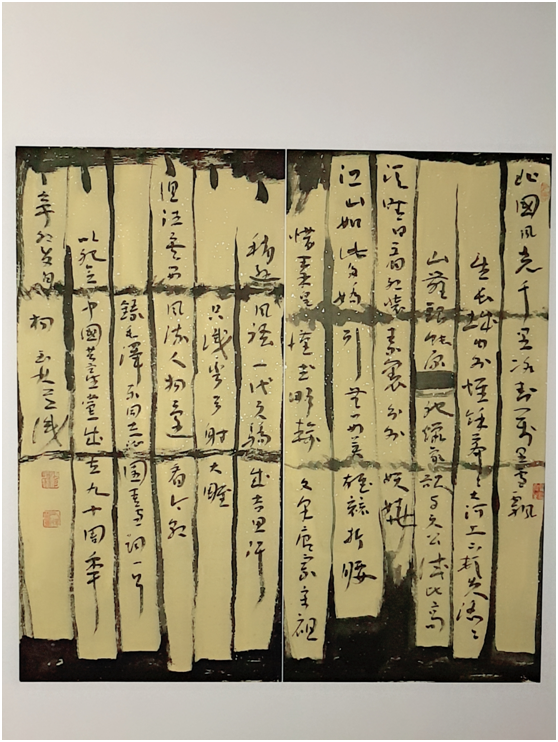 北國風光千里冰封萬里雪飄
望長城内外惟餘莽〻大河上下頓失滔〻
山舞銀蛇原馳蠟象欲与天公試比高
須晴日看紅裝素裹分外妖嬈
江山如此多嬌引無數英雄競折腰
惜秦皇漢武略輸文采唐宗宋祖
稍遜風骚一代天驕成吉思汗
只識彎弓射大雕
俱往矣數風流人物還看今朝
錄毛澤東同志沁園春雪詞一首
以紀念中國共產黨成立九十周年
辛卯